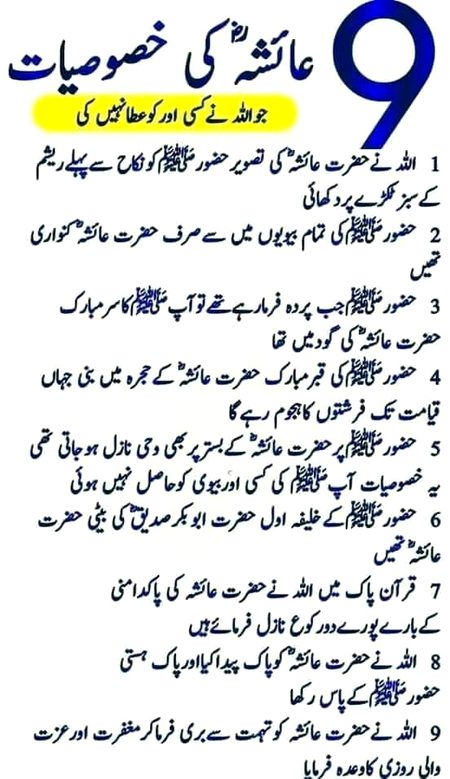 9
عائشہؓ کی خصوصیات
جو اللہ نے کسی اور کو عطا نہیں کی
1 اللہ نے حضرت عائشہؓ کی تصویر حضور ﷺ کو نکاح سے پہلے ریشم
کے سبز ٹکڑے پر دکھائی
2 حضور ﷺ کی تمام بیویوں میں سے صرف حضرت عائشہؓ کنواری
تھیں
3 حضور ﷺ جب پردہ فرما رہے تھے تو آپ ﷺ کا سر مبارک
حضرت عائشہؓ کی گود میں تھا
4 حضور ﷺ کی قبر مبارک حضرت عائشہؓ کے حجرہ میں بنی جہاں
قیامت تک فرشتوں کا ہجوم رہے گا
5 حضور ﷺ پر حضرت عائشہؓ کے بستر پر بھی وحی نازل ہو جاتی تھی
یہ خصوصیات آپ ﷺ کی کسی اور بیوی کو حاصل نہیں ہوئی
6 حضور ﷺ کے خلیفہ اول حضرت ابوبکر صدیقؓ کی بیٹی حضرت
عائشہؓ تھیں
7 قرآن پاک میں اللہ نے حضرت عائشہ کی پاکدامنی
کے بارے پورے دو رکوع نازل فرمائے ہیں
8 اللہ نے حضرت عائشہؓ کو پاک پیدا کیا اور پاک ہستی
حضور ﷺ کے پاس رکھا
9 اللہ نے حضرت عائشہ کو تہمت سے بری فرما کر مغفرت اور عزت
والی روزی کا وعدہ فرمایا